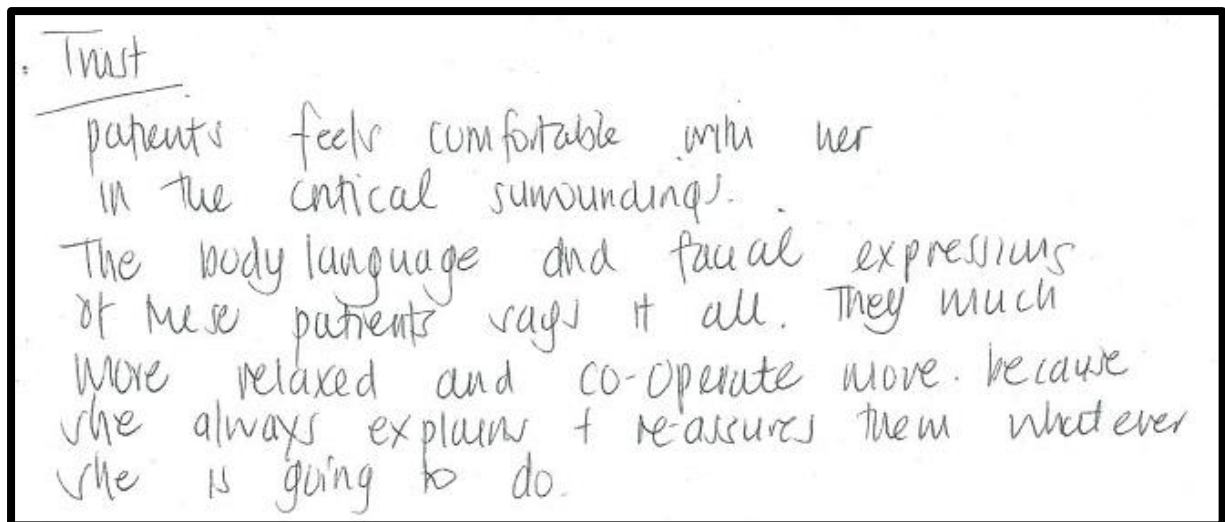 . Trust
patients feels comfortable with her
in the critical surroundings.
The body language and facial expressions
of these patients says it all. They much
more relaxed and co-operate more. because
she always explains + re-assures them whatever
she is going to do.